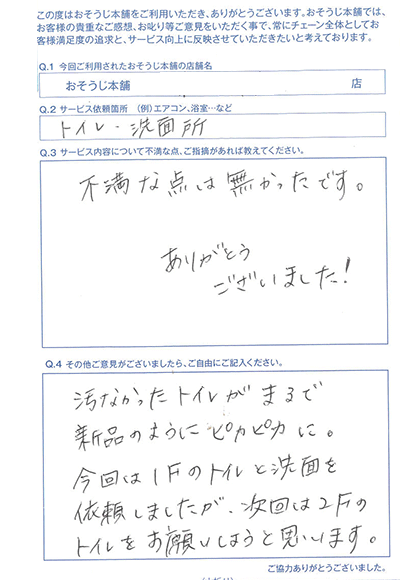 この度はおそうじ本舗をご利用いただき、ありがとうございます。おそうじ本舗では、
お客様の貴重なご感想、お叱り等ご意見をいただく事で、常にチェーン全体としてお
客様満足度の追求と、サービス向上に反映させていただきたいと考えております。
Q.1 今回ご利用されたおそうじ本舗の店舗名
おそうじ本舗 店
Q.2 サービス依頼箇所 (例)エアコン、浴室…など
トイレ・洗面所
Q.3 サービス内容について不満な点、ご指摘があれば教えてください。
不満な点は無かったです。
ありがとう
ございました!
Q.4 その他ご意見がございましたら、ご自由にご記入ください。
汚なかったトイレがまるで
新品のようにピカピカに。
今回は1Fのトイレと洗面を
依頼しましたが、次回は2Fの
トイレをお願いしようと思います。
ご協力ありがとうございました。